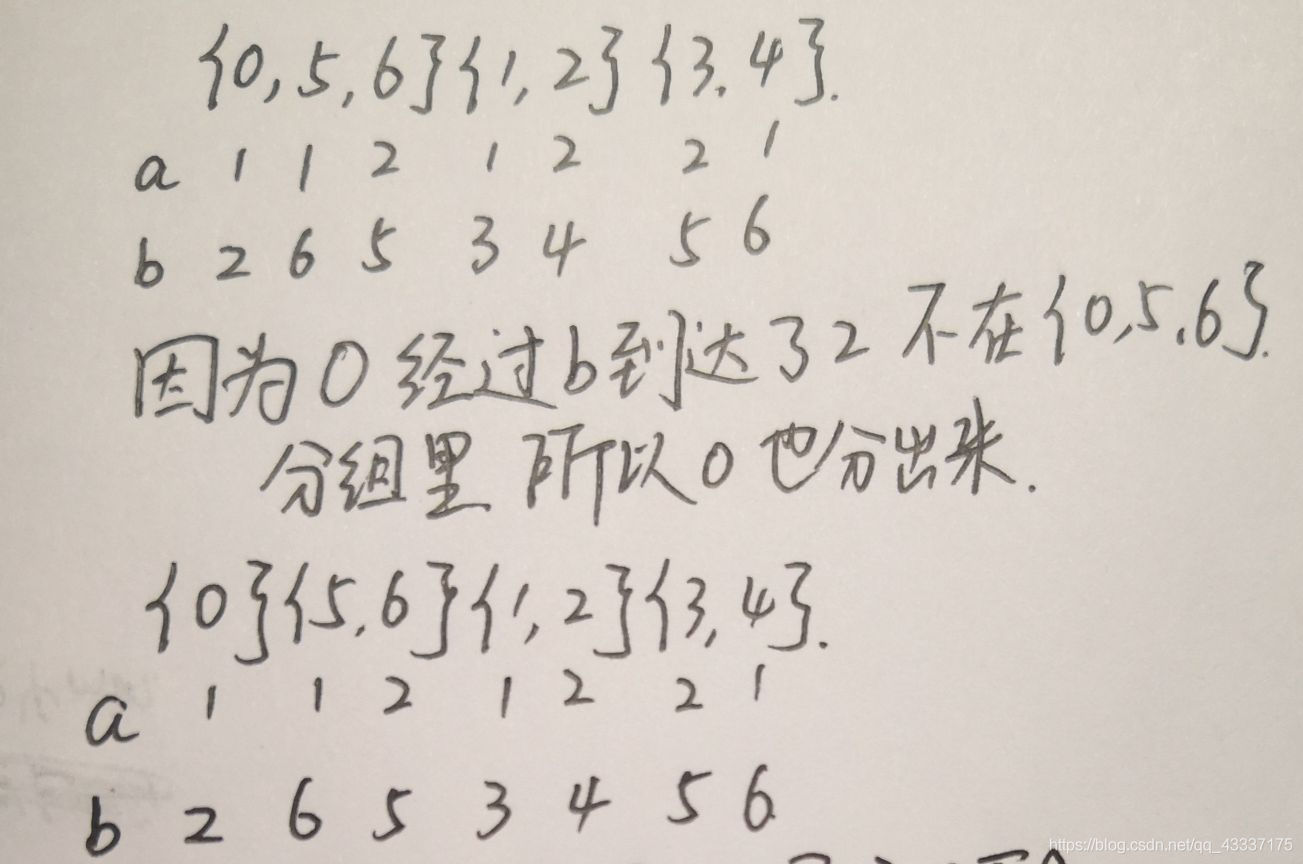 {0,5,6}{1,2}{3,4}.
a 1 1 2 1 2 2 1
b 2 6 5 3 4 5 6
因为0经过b到达了2不在{0,5,6}.
分组里 所以0也分出来.
{0}{5,6}{1,2}{3,4}.
a 1 1 2 1 2 2 1
b 2 6 5 3 4 5 6
https://blog.csdn.net/qq_43337175